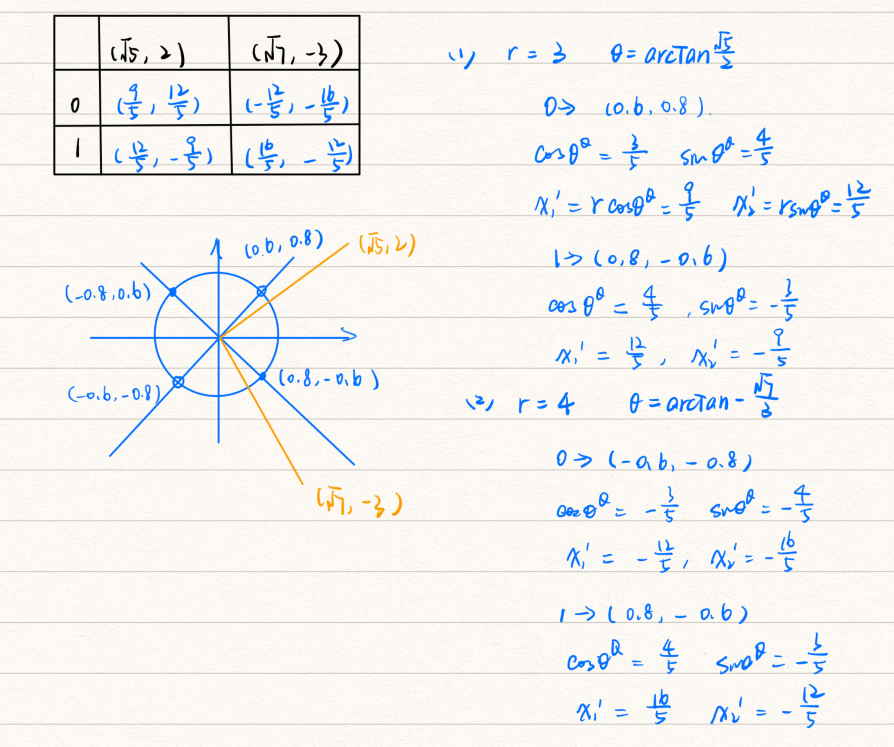 (√5, 2) (√7, -3)
0 (9/5, 12/5) (-12/5, -16/5)
1 (12/5, -9/5) (16/5, -12/5)
(0.6, 0.8)
(√5, 2)
(-0.8, 0.6)
(-0.6, -0.8)
(0.8, -0.6)
(√7, -3)
(1) r = 3 θ = arcTan √5/2
0→ (0.6, 0.8).
cosθ^Q = 3/5 sinθ^Q = 4/5
x₁' = r cosθ^Q = 9/5 x₂' = r sinθ^Q = 12/5
1→ (0.8, -0.6)
cosθ^Q = 4/5, sinθ^Q = -3/5
x₁' = 12/5, x₂' = -9/5
(2) r = 4 θ = arcTan - √7/3
0→ (-0.6, -0.8)
cosθ^Q = -3/5 sinθ^Q = -4/5
x₁' = -12/5, x₂' = -16/5
1→ (0.8, -0.6)
cosθ^Q = 4/5 sinθ^Q = -3/5
x₁' = 16/5 x₂' = -12/5